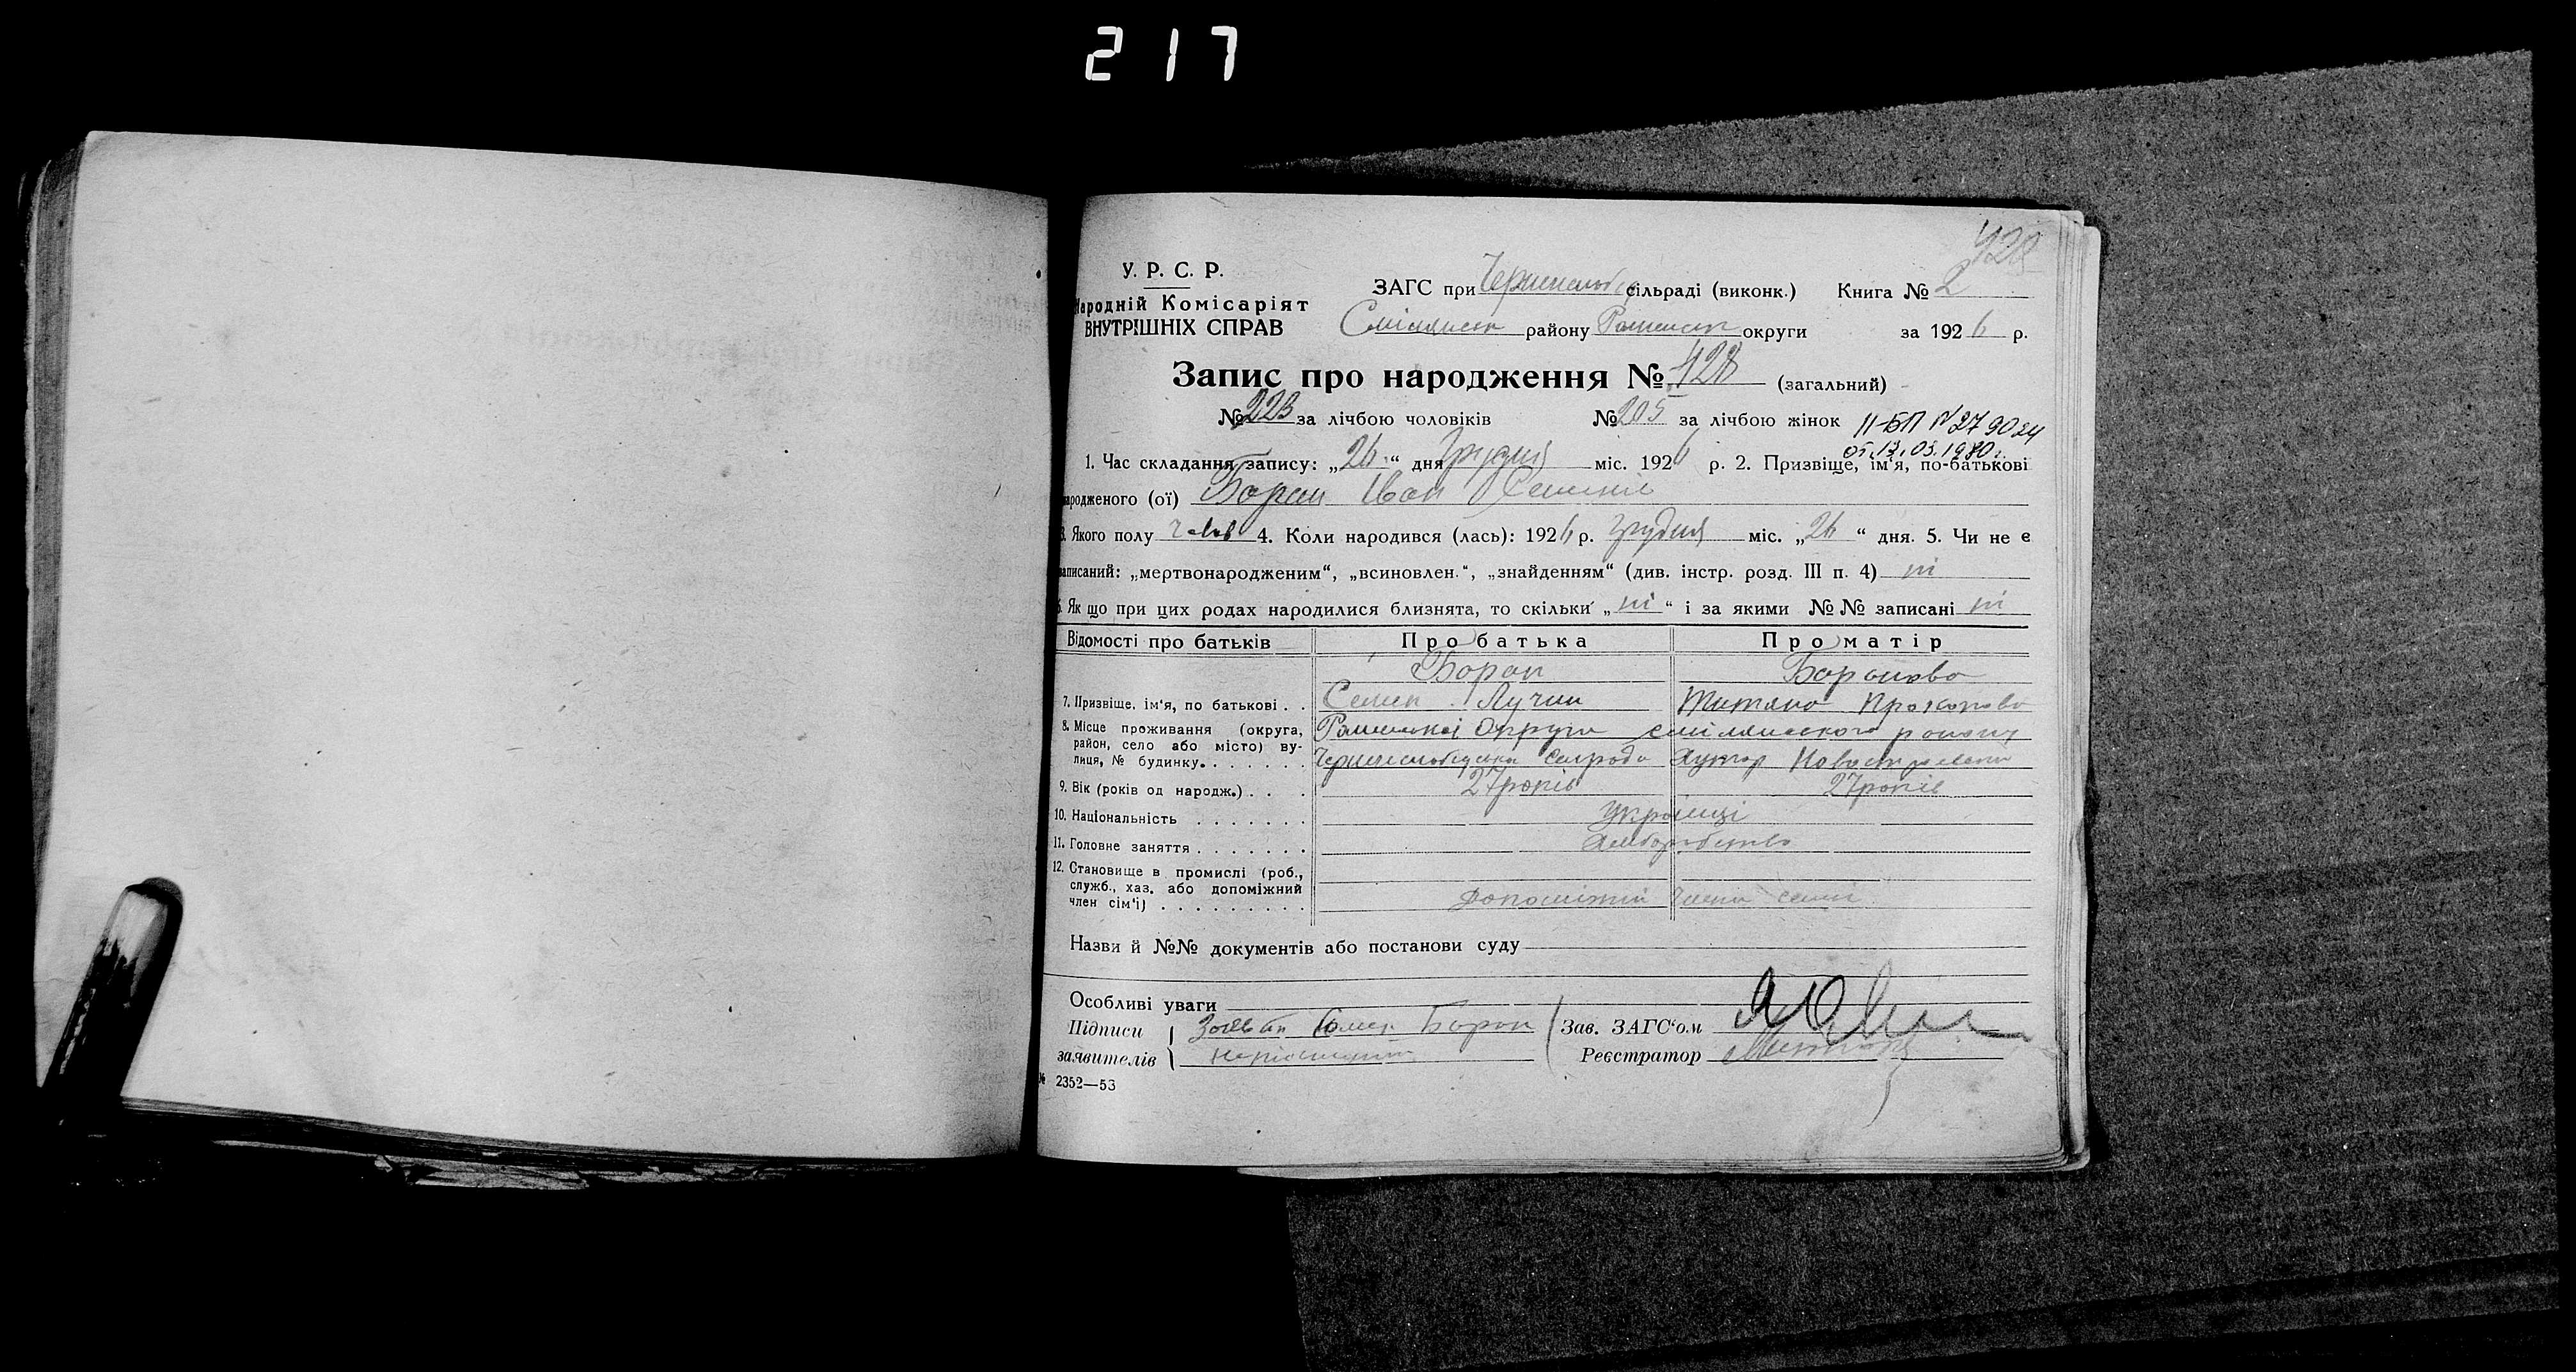 217
428
У. Р. С. Р.
Народній Комісаріят
ВНУТРІШНІХ СПРАВ
ЗАГС при сільраді (виконк.) Книга № 2
району округи за 1926 р.
Запис про народження № 428 (загальний)
№ 223 за лічбою чоловіків № 205 за лічбою жінок
II-БП № 279024
от. 13.03.1980г.
1. Час складання запису: „26“ дня Грудня міс. 1926 р. 2. Призвіще, ім'я, по-батькові
народженого (ої) Боран Іван
3. Якого полу 4. Коли народився (лась): 1926 р. грудня міс. „26“ дня. 5. Чи не є
записаний: „мертвонародженим“, „всиновлен.“, „знайденням“ (див. інстр. розд. III п. 4) ні
6. Як що при цих родах народилися близнята, то скільки „ні“ і за якими №№ записані ні
Відомості про батьків Про батька Про матір
Боран Боранова
7. Призвіще, ім'я, по батькові . . Семен Лучин Титяна Прокопова
8. Місце проживання (округа,
район, село або місто) ву-
лиця, № будинку. . . . . . . Роменської Округи району
Хутор
9. Вік (років од народж.) . . . 27 років 27 років
10. Національність . . . . . . . Українці
11. Головне заняття . . . . . . . Хліборобство
12. Становище в промислі (роб.,
служб., хаз. або допоміжний
член сім'ї) . . . . . . . . . Допоміжний члени семї
Назви й №№ документів або постанови суду
Особливі уваги
Підписи
заявителів
Семен Боран
неписьменний
Зав. ЗАГС'ом
Реєстратор
№ 2352—53